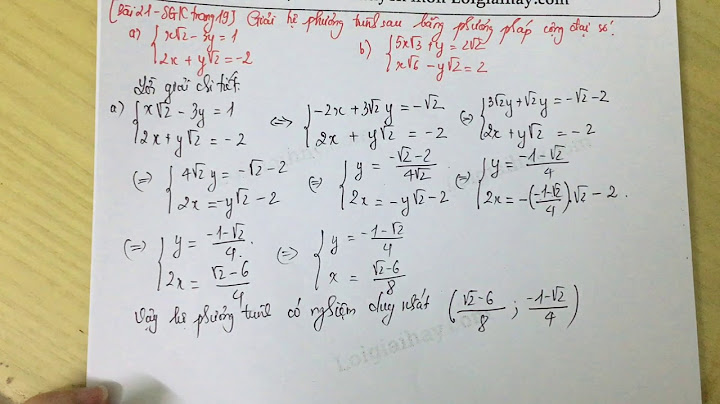 Loigiaihay.com
[Bài 21 - SGK trang 19] Giải hệ phương trình sau bằng phương pháp cộng đại số.
a) {x√2 - 3y = 1
2x + y√2 = -2
b) {5x√3 + y = 2√2
x√6 - y√2 = 2
Lời giải chi tiết:
a) {x√2 - 3y = 1 ⇔ {-2x + 3√2 y = -√2 ⇔ {3√2y + √2y = -√2 - 2
2x + y√2 = -2 2x + y√2 = -2 2x + y√2 = -2
⇔ {4√2 y = -√2 - 2 ⇔ {y = (-√2 - 2)/(4√2) ⇔ {y = (-1 - √2)/4
2x = -y√2 - 2 2x = -y√2 - 2 2x = -((-1-√2)/4).√2 - 2.
⇔ {y = (-1-√2)/4. ⇔ {y = (-1-√2)/4
2x = (√2-6)/4 x = (√2-6)/8
Vậy hệ phương trình có nghiệm duy nhất ((√2-6)/8 ; (-1-√2)/4)
Loigiaihay.com